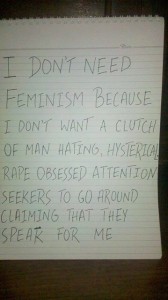 I DON'T NEED
FEMINISM BECAUSE
I DON'T WANT A CLUTCH
OF MAN HATING, HYSTERICAL
RAPE OBSESSED ATTENTION
SEEKERS TO GO AROUND
CLAIMING THAT THEY
SPEAK FOR ME